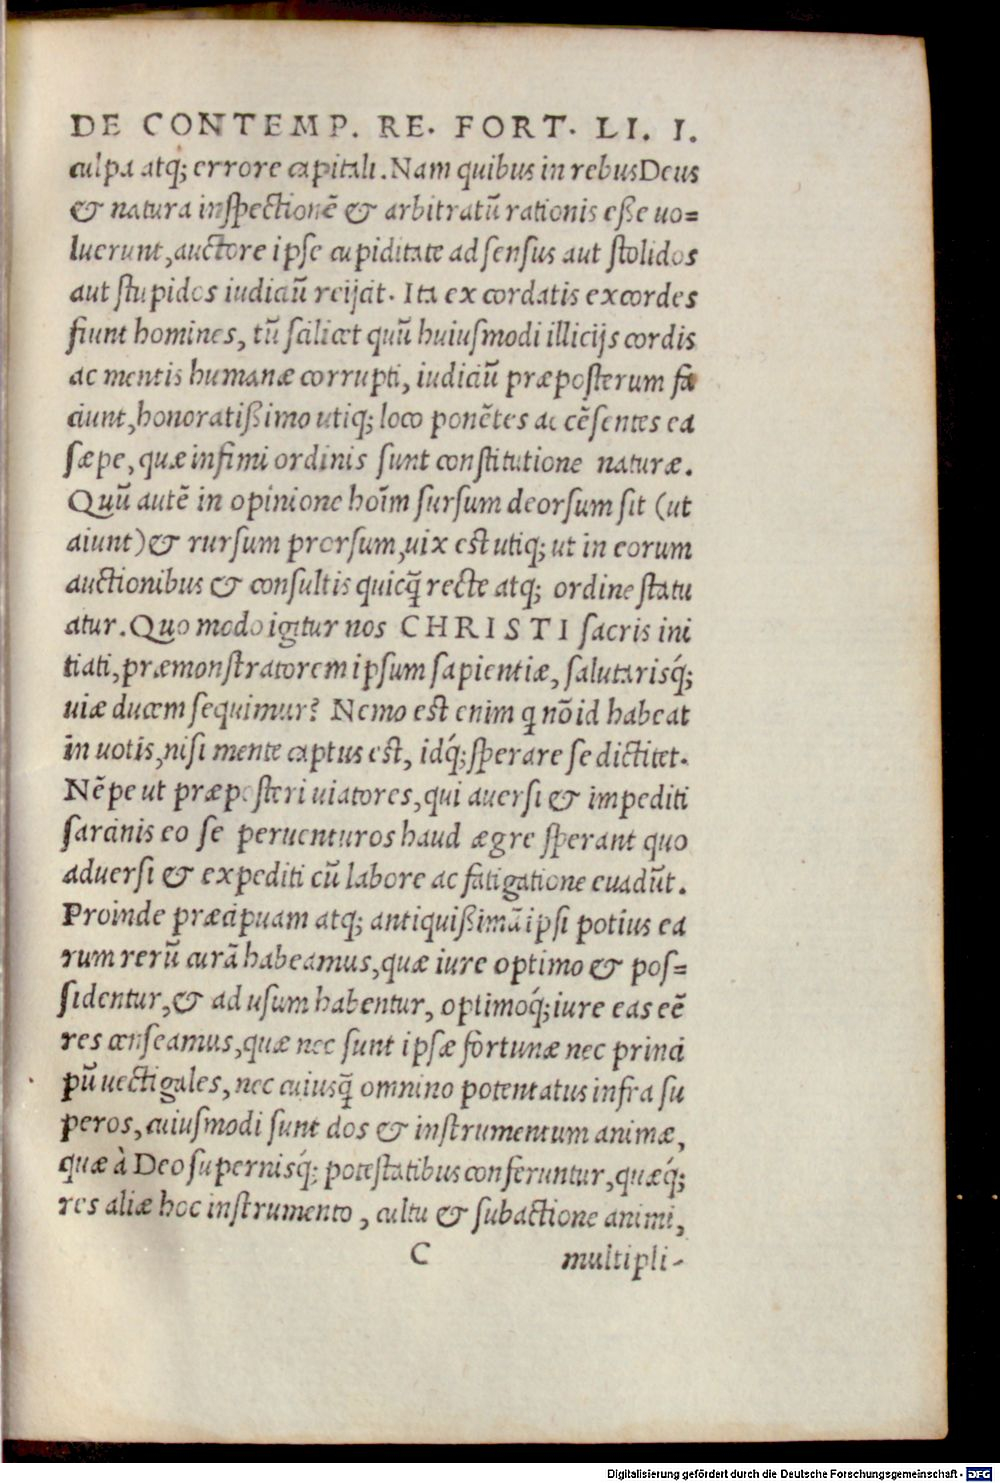 DE CONTEMP. RE. FORT. LI. I.
culpa atq; errore capitali. Nam quibus in rebus Deus
& natura inspectionē & arbitratū rationis eße uo=
luerunt, auctore ipse cupiditate ad sensus aut stolidos
aut stupidos iudiciū reijcit. Ita ex cordatis excordes
fiunt homines, tū scilicet quū huiusmodi illicijs cordis
ac mentis humanæ corrupti, iudiciū præposterum fa
ciunt, honoratißimo utiq; loco ponētes ac cēsentes ea
sæpe, quæ infimi ordinis sunt constitutione naturæ.
Quū autē in opinione hoīm sursum deorsum sit (ut
aiunt) & rursum prorsum, uix est utiq; ut in eorum
auctionibus & consultis quicq̄ recte atq; ordine statu
atur. Quo modo igitur nos CHRISTI sacris ini
tiati, præmonstratorem ipsum sapientiæ, salutarisq́;
uiæ ducem sequimur? Nemo est enim q̄ nō id habeat
in uotis, nisi mente captus est, idq́; sperare se dictitet.
Nēpe ut præposteri uiatores, qui auersi & impediti
sarcinis eo se peruenturos haud ægre sperant quo
aduersi & expediti cū labore ac fatigatione euadūt.
Proinde præcipuam atq; antiquißimā ipsi potius ea
rum rerū curā habeamus, quæ iure optimo & pos=
sidentur, & ad usum habentur, optimoq́; iure eas eē
res censeamus, quæ nec sunt ipsæ fortunæ nec princi
pū uectigales, nec cuiusq̄ omnino potentatus infra su
peros, cuiusmodi sunt dos & instrumentum animæ,
quæ à Deo supernisq́; potestatibus conferuntur, quæq́;
res aliæ hoc instrumento, cultu & subactione animi,
C multipli-
Digitalisierung gefördert durch die Deutsche Forschungsgemeinschaft - DFG